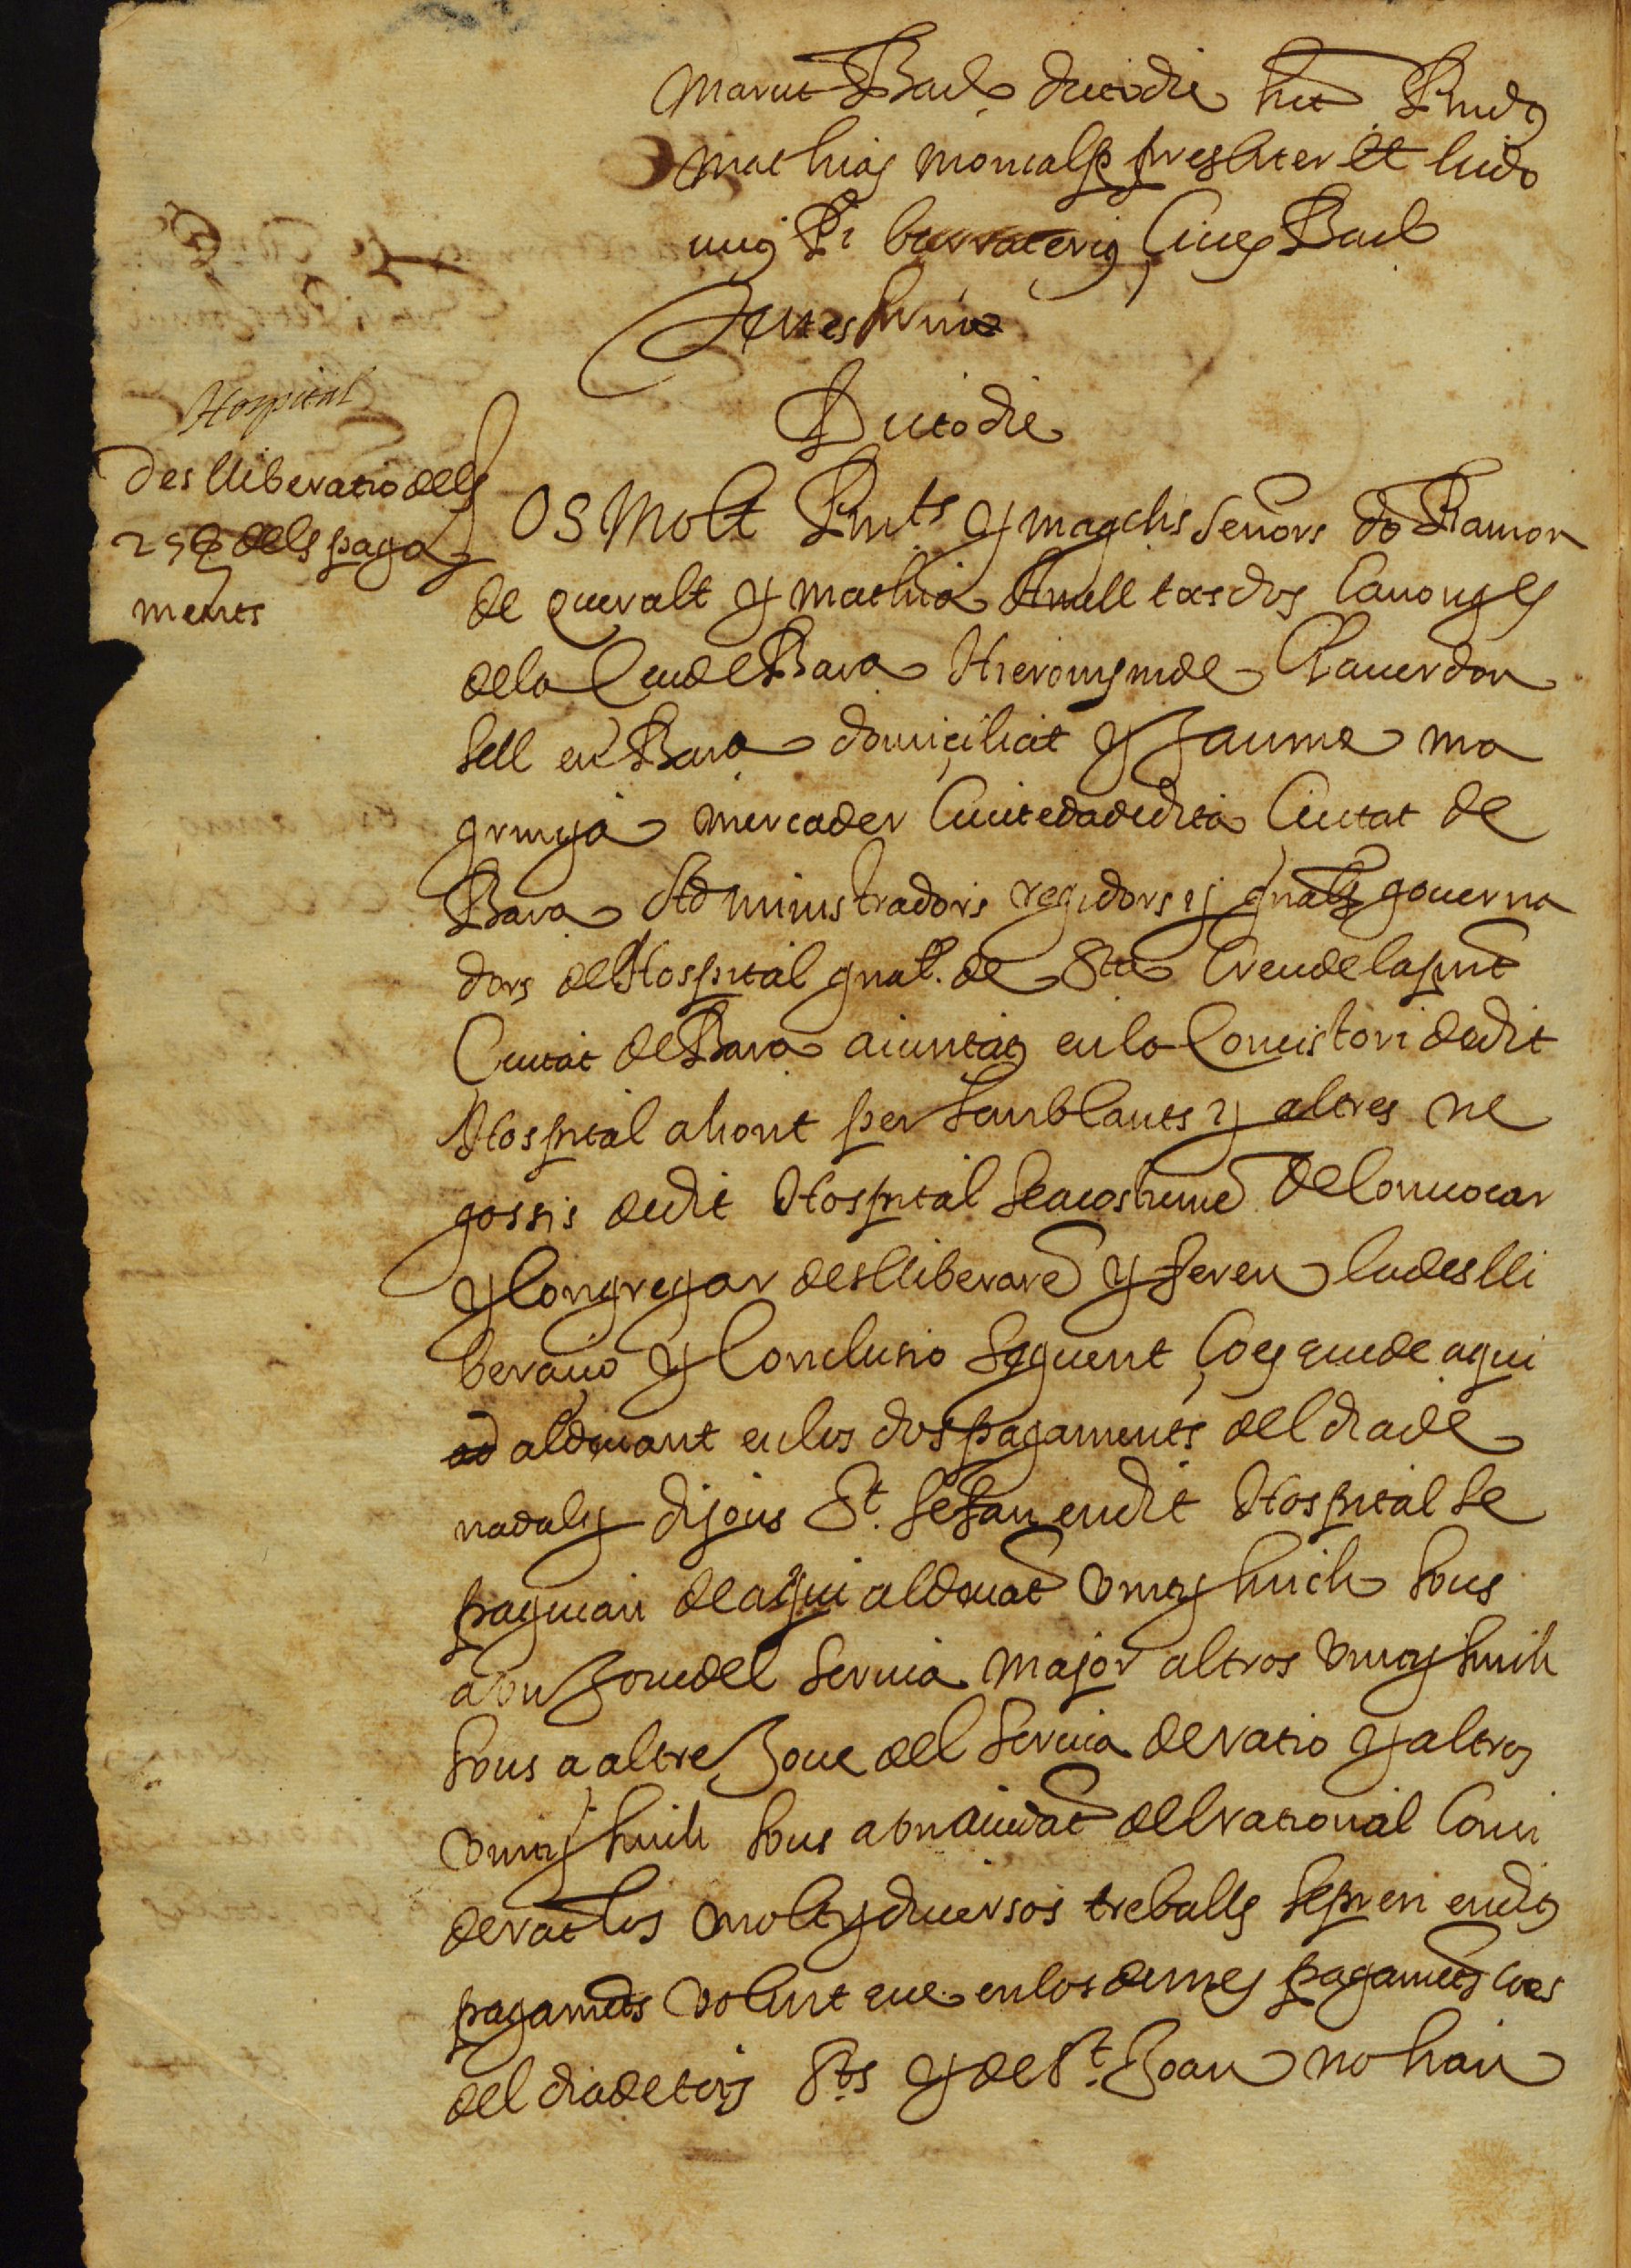 Marcut Bach dicto die
Mathias moncalp presbiter et ludo
uicus Pi barraterius Ciues Bach
Dicto die
Hospital
Deslliberatio dels
25 ß dels paga
ments
Os Molt Rnts y magchs señors do Ramon
de queralt y mathia Amell tots dos Canonges
de la Seu de Bara Hieronym de Clauer don
sell en Bara domiciliat y Jaume ma
grinya mercader Ciuteda de dita Ciutat de
Bara Administradors regidors y gnals gouerna
dors del Hospital gnal. de Sta Creu de la pnt
Ciutat de Bara aiuntats en lo Concistori de dit
Hospital ahont per semblants y altres ne
gossis de dit Hospital se acostume de conuocar
y Congregar deslliberare y feren la deslli
beracio y Conclusio seguent ço es que de aqui
al deuant en los dos pagaments del dia de
nadal y dijous St. se fan en dit Hospital se
paguian de aqui al deuat vint y huich sous
a vn Joue del seruia major altros vint y huich
sous a altre Joue del seruia de ratio y altros
vint y huich sous a vn aiudat del rational Consi
derat los molts y diuersos treballs se pren en dits
pagamets volent que en los demes pagamets ço es
del dia de tots Sts y de St. Joan no haie